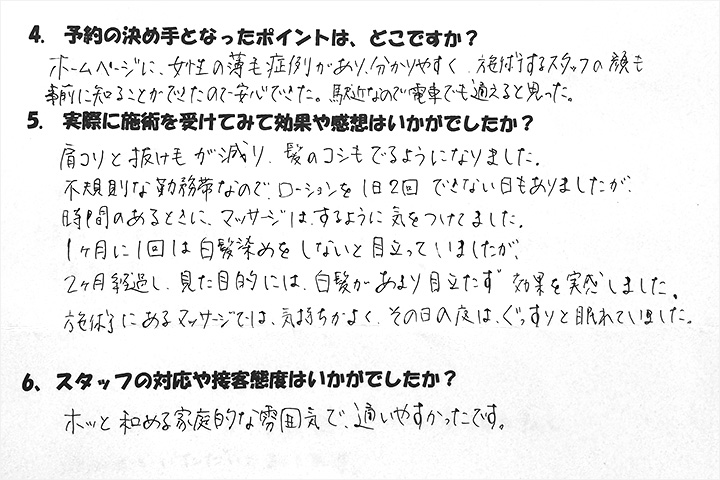 4. 予約の決め手となったポイントは、どこですか？
ホームページに、女性の薄毛症例があり、分かりやすく、施術するスタッフの顔も
事前に知ることができたので安心できた。駅近なので電車でも通えると思った。
5. 実際に施術を受けてみて効果や感想はいかがでしたか？
肩コリと抜け毛が減り、髪のコシもでるようになりました。
不規則な勤務帯なので、ローションを1日2回できない日もありましたが、
時間のあるときに、マッサージは、するように気をつけてました。
1ヶ月に1回は白髪染めをしないと目立っていましたが、
2ヶ月経過し、見た目的には、白髪があまり目立たず効果を実感しました。
施術にあるマッサージでは、気持ちがよく、その日の夜は、ぐっすりと眠れていました。
6、スタッフの対応や接客態度はいかがでしたか？
ホッと和める家庭的な雰囲気で、通いやすかったです。